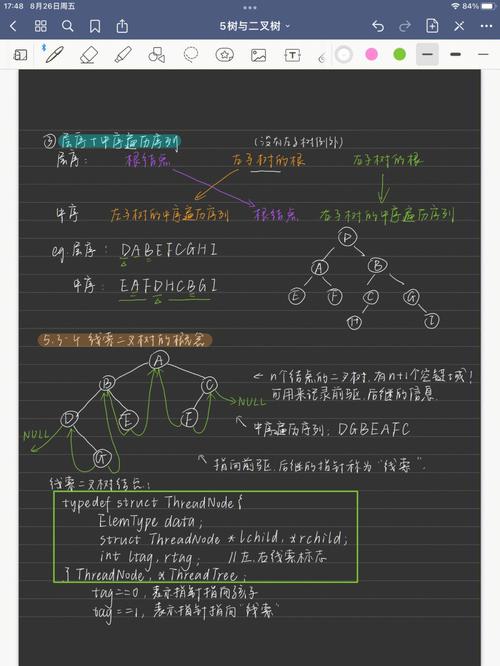 17:48 8月26日周五
84%
5树与二叉树
③ 层序+中序遍历序列 (没有左子树例外)
层序: 根结点 左子树的根 右子树的根
中序 左子树的中序遍历序列 根结点 右子树的中序遍历序列
eg.层序: DABEFCGHI
中序: EAFDHCBGI
D
A B
E F C G
H I
5.3-4 线索二叉树的概念
A
B C
D E F
G
NULL
NULL
← n个结点的二叉树,有n+1个空链域!
可用来记录前驱.后继的信息.
中序遍历序列: DGBEAFC
指向前驱.后继的指针称为"线索".
线索二叉树结点:
typedef struct ThreadNode{
ElemType data;
struct ThreadNode *lchild, *rchild;
int ltag, rtag; //左.右线索标志
} ThreadNode, *ThreadTree;
tag==0, 表示指针指向孩子
tag==1, 表示指针指向"线索"